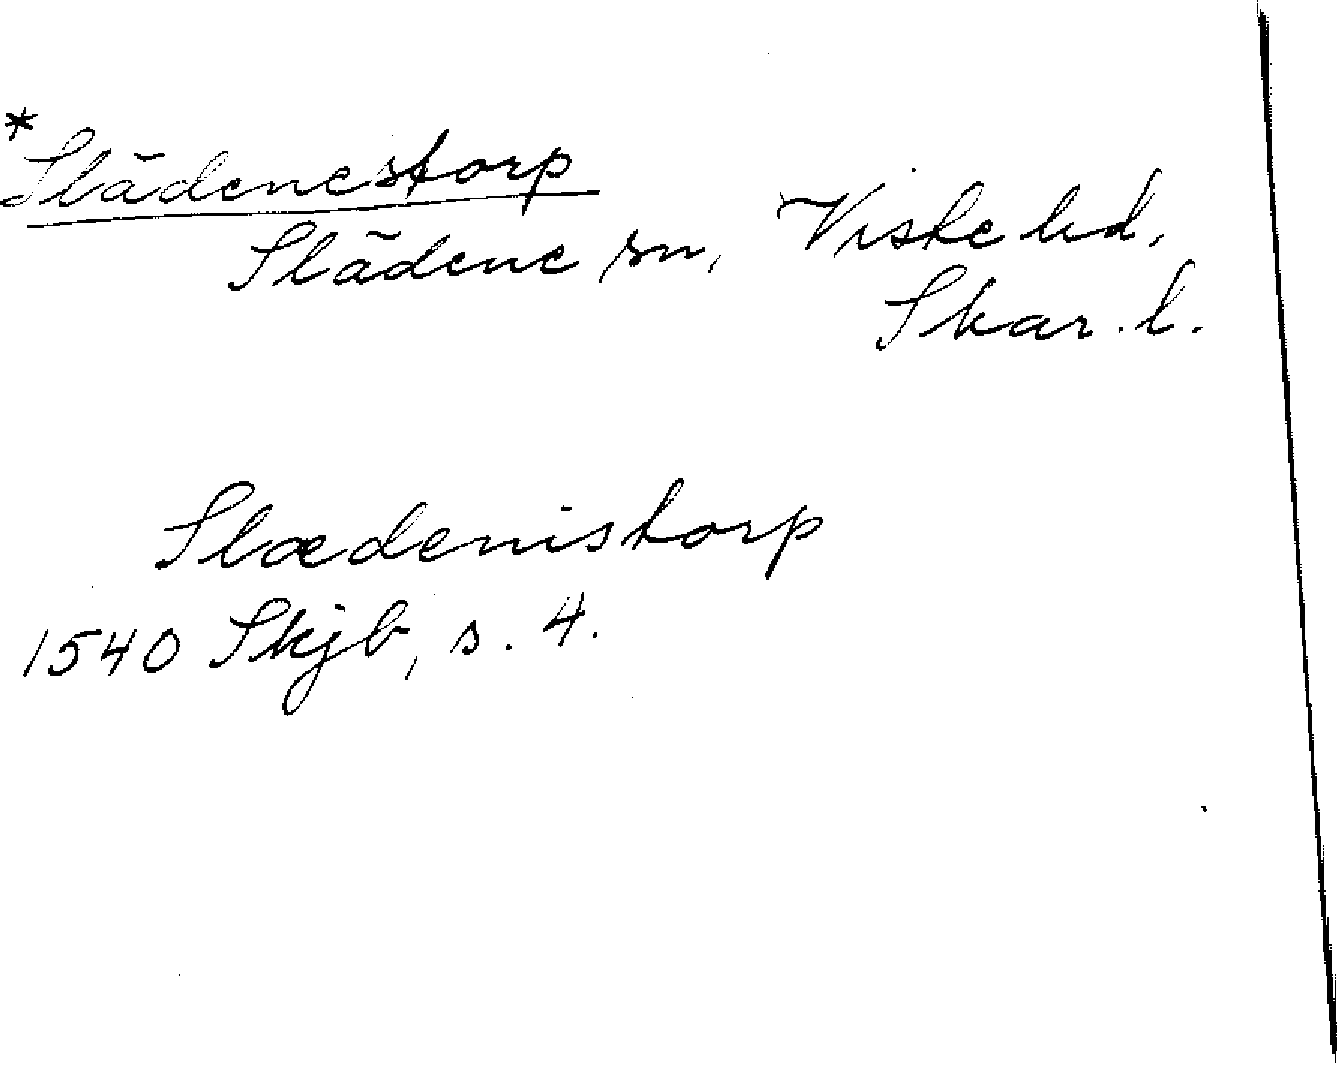 *Slädenestorp
Slädene sn, Viste hd.
Skar. l.
Slædenistorp
1540 Skjb, s. 4.